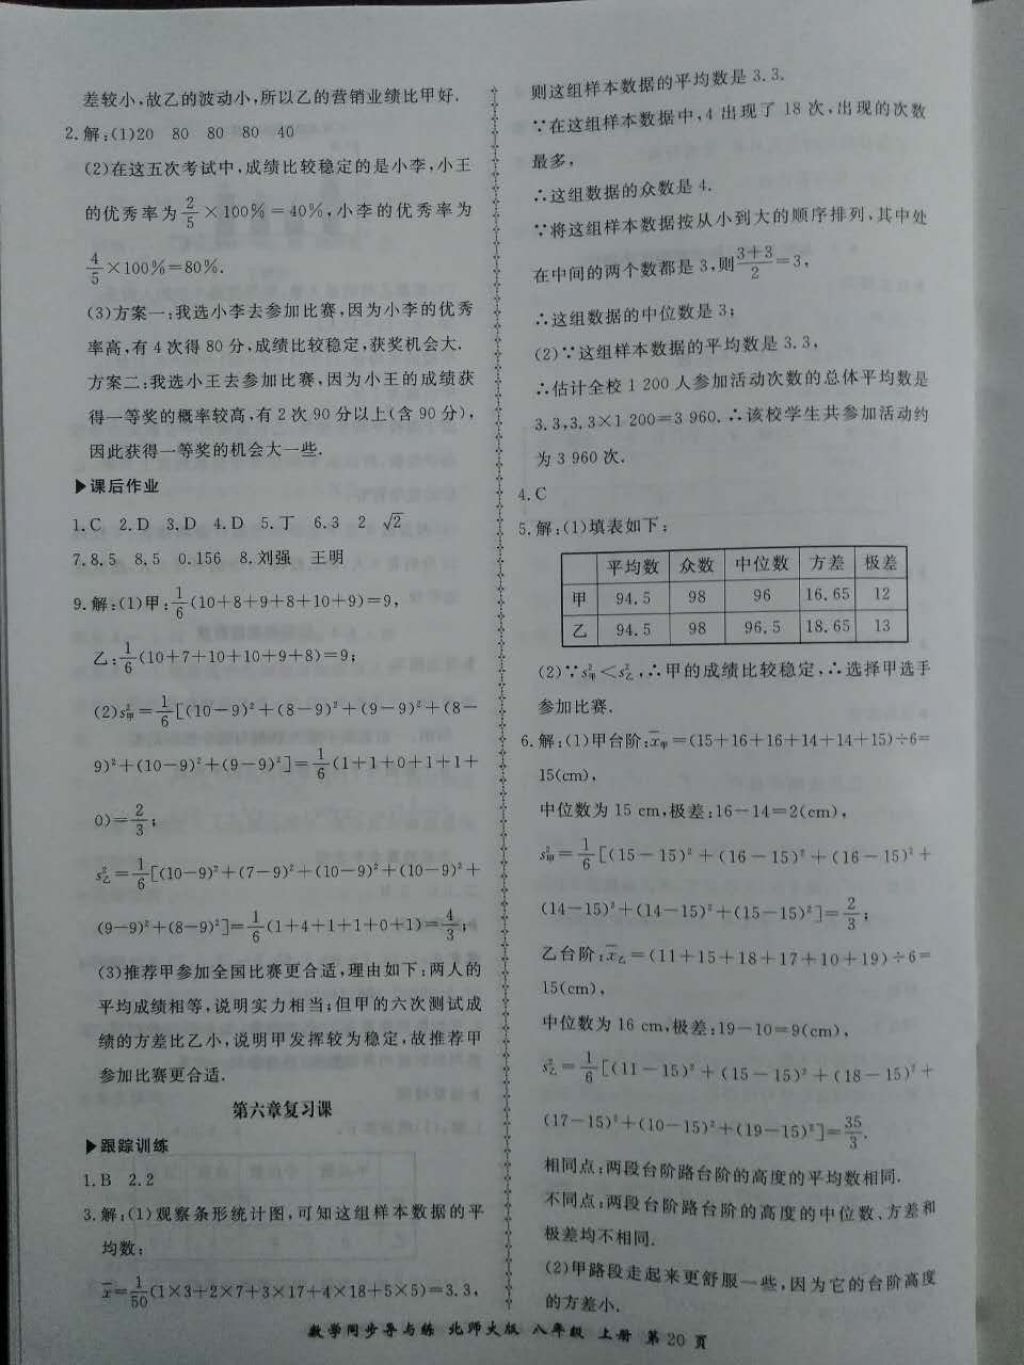 差较小,故乙的波动小,所以乙的营销业绩比甲好.
2.解:(1)20 80 80 80 40
(2)在这五次考试中,成绩比较稳定的是小李,小王
的优秀率为2/5×100%=40%,小李的优秀率为
4/5×100%=80%.
(3)方案一:我选小李去参加比赛,因为小李的优秀
率高,有4次得80分,成绩比较稳定,获奖机会大.
方案二:我选小王去参加比赛,因为小王的成绩获
得一等奖的概率较高,有2次90分以上(含90分),
因此获得一等奖的机会大一些.
▶课后作业
1.C 2.D 3.D 4.D 5.丁 6.3 2 √2
7.8.5 8.5 0.156 8.刘强 王明
9.解:(1)甲:1/6(10+8+9+8+10+9)=9,
乙:1/6(10+7+10+10+9+8)=9;
(2)s²甲=1/6[(10-9)²+(8-9)²+(9-9)²+(8-
9)²+(10-9)²+(9-9)²]=1/6(1+1+0+1+1+
0)=2/3;
s²乙=1/6[(10-9)²+(7-9)²+(10-9)²+(10-9)²+
(9-9)²+(8-9)²]=1/6(1+4+1+1+0+1)=4/3;
(3)推荐甲参加全国比赛更合适,理由如下:两人的
平均成绩相等,说明实力相当;但甲的六次测试成
绩的方差比乙小,说明甲发挥较为稳定,故推荐甲
参加比赛更合适.
第六章复习课
▶跟踪训练
1.B 2.2
3.解:(1)观察条形统计图,可知这组样本数据的平
均数:
x̄=1/50(1×3+2×7+3×17+4×18+5×5)=3.3,
则这组样本数据的平均数是3.3.
∵在这组样本数据中,4出现了18次,出现的次数
最多,
∴这组数据的众数是4.
∵将这组样本数据按从小到大的顺序排列,其中处
在中间的两个数都是3,则3+3/2=3,
∴这组数据的中位数是3;
(2)∵这组样本数据的平均数是3.3,
∴估计全校1 200人参加活动次数的总体平均数是
3.3,3.3×1 200=3 960.∴该校学生共参加活动约
为3 960次.
4.C
5.解:(1)填表如下:
平均数 众数 中位数 方差 极差
甲 94.5 98 96 16.65 12
乙 94.5 98 96.5 18.65 13
(2)∵s²甲<s²乙,∴甲的成绩比较稳定,∴选择甲选手
参加比赛.
6.解:(1)甲台阶:x̄甲=(15+16+16+14+14+15)÷6=
15(cm),
中位数为15 cm,极差:16-14=2(cm),
s²甲=1/6[(15-15)²+(16-15)²+(16-15)²+
(14-15)²+(14-15)²+(15-15)²]=2/3;
乙台阶:x̄乙=(11+15+18+17+10+19)÷6=
15(cm),
中位数为16 cm,极差:19-10=9(cm),
s²乙=1/6[(11-15)²+(15-15)²+(18-15)²+
(17-15)²+(10-15)²+(19-15)²]=35/3.
相同点:两段台阶路台阶的高度的平均数相同.
不同点:两段台阶路台阶的高度的中位数、方差和
极差均不相同.
(2)甲路段走起来更舒服一些,因为它的台阶高度
的方差小.
数学同步导与练 北师大版 八年级 上册 第20页